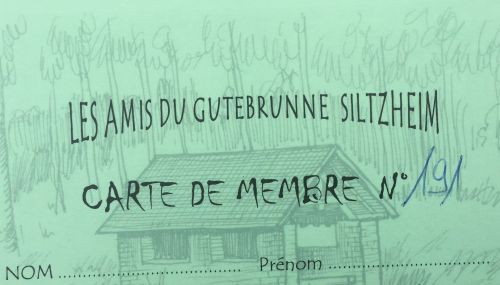 LES AMIS DU GUTEBRUNNE SILTZHEIM
CARTE DE MEMBRE N° 191
NOM .......................................... Prénom ......................................